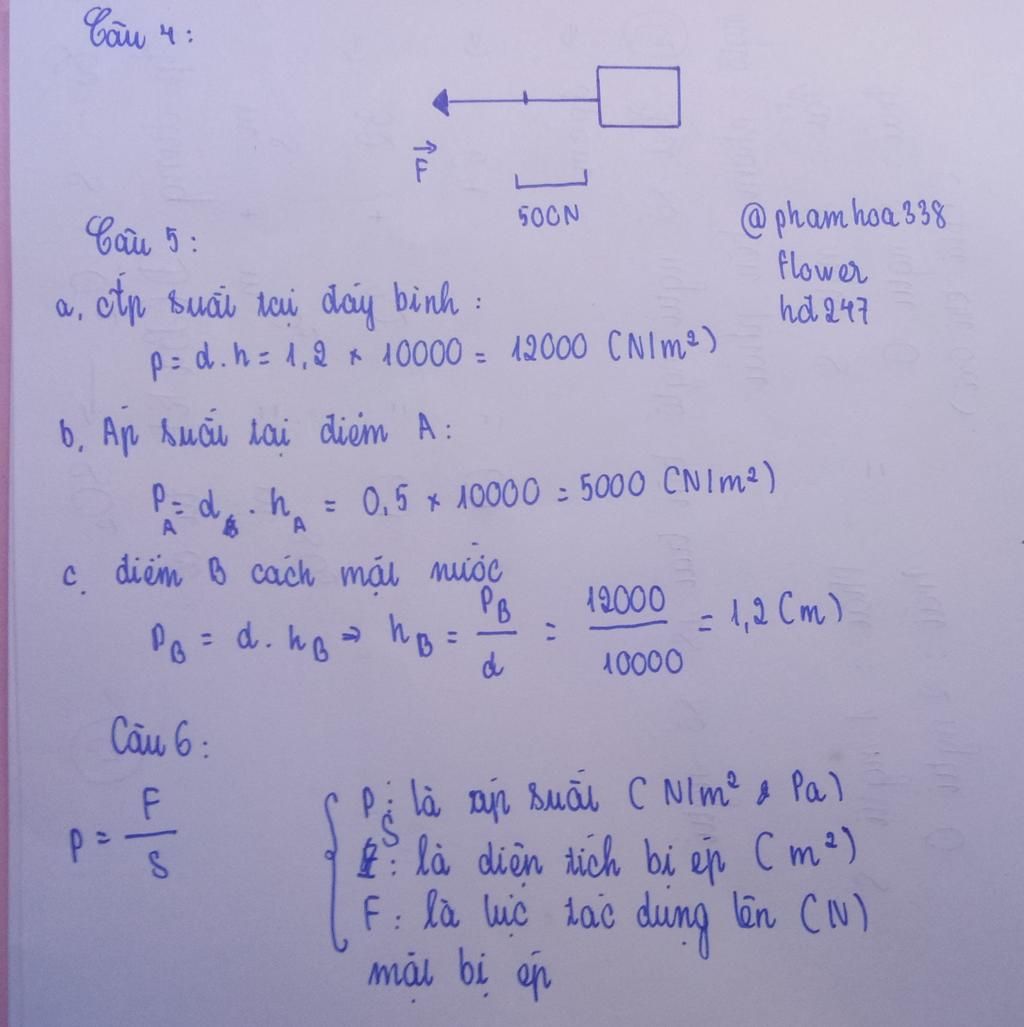 Câu 4:
F
500N
@phamhoa338
flower
hđ247
Câu 5:
a, Áp suất tại đáy bình:
p = d.h = 1,2 × 10000 = 12000 (N/m²)
b, Áp suất tại điểm A:
P_A = d . h_A = 0,5 × 10000 = 5000 (N/m²)
c. điểm B cách mặt nước
P_B = d . h_B ⇒ h_B = P_B / d = 12000 / 10000 = 1,2 (m)
Câu 6:
p = F / S
P: là áp suất (N/m², Pa)
S: là diện tích bị ép (m²)
F: là lực tác dụng lên (N)
mặt bị ép